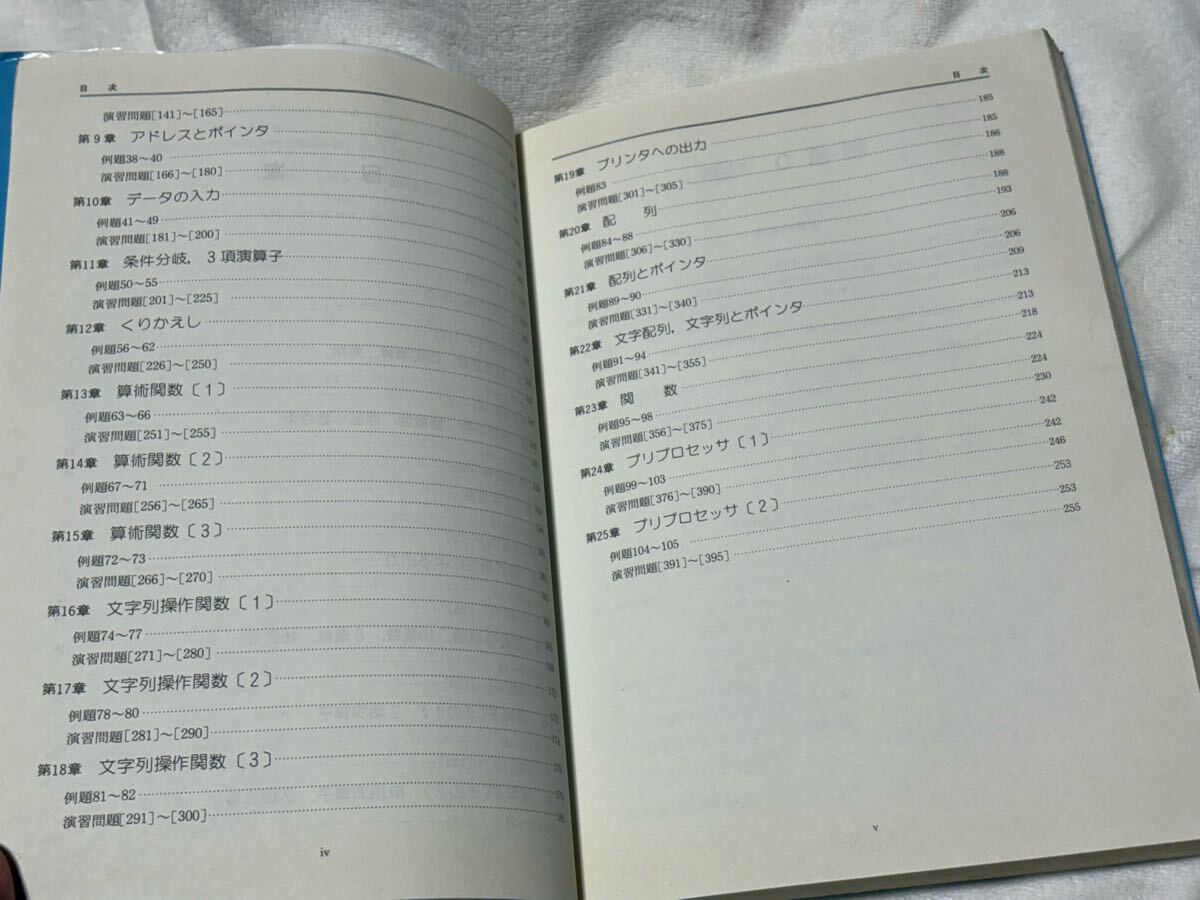 目 次
演習問題[141]～[165]
第9章 アドレスとポインタ
例題38～40
演習問題[166]～[180]
第10章 データの入力
例題41～49
演習問題[181]～[200]
第11章 条件分岐，3項演算子
例題50～55
演習問題[201]～[225]
第12章 くりかえし
例題56～62
演習問題[226]～[250]
第13章 算術関数〔1〕
例題63～66
演習問題[251]～[255]
第14章 算術関数〔2〕
例題67～71
演習問題[256]～[265]
第15章 算術関数〔3〕
例題72～73
演習問題[266]～[270]
第16章 文字列操作関数〔1〕
例題74～77
演習問題[271]～[280]
第17章 文字列操作関数〔2〕
例題78～80
演習問題[281]～[290]
第18章 文字列操作関数〔3〕
例題81～82
演習問題[291]～[300]
iv
目 次
第19章 プリンタへの出力 185
例題83 185
演習問題[301]～[305] 186
第20章 配 列 188
例題84～88 188
演習問題[306]～[330] 193
第21章 配列とポインタ 206
例題89～90 206
演習問題[331]～[340] 209
第22章 文字配列，文字列とポインタ 213
例題91～94 213
演習問題[341]～[355] 218
第23章 関 数 224
例題95～98 224
演習問題[356]～[375] 230
第24章 プリプロセッサ〔1〕 242
例題99～103 242
演習問題[376]～[390] 246
第25章 プリプロセッサ〔2〕 253
例題104～105 253
演習問題[391]～[395] 255
v